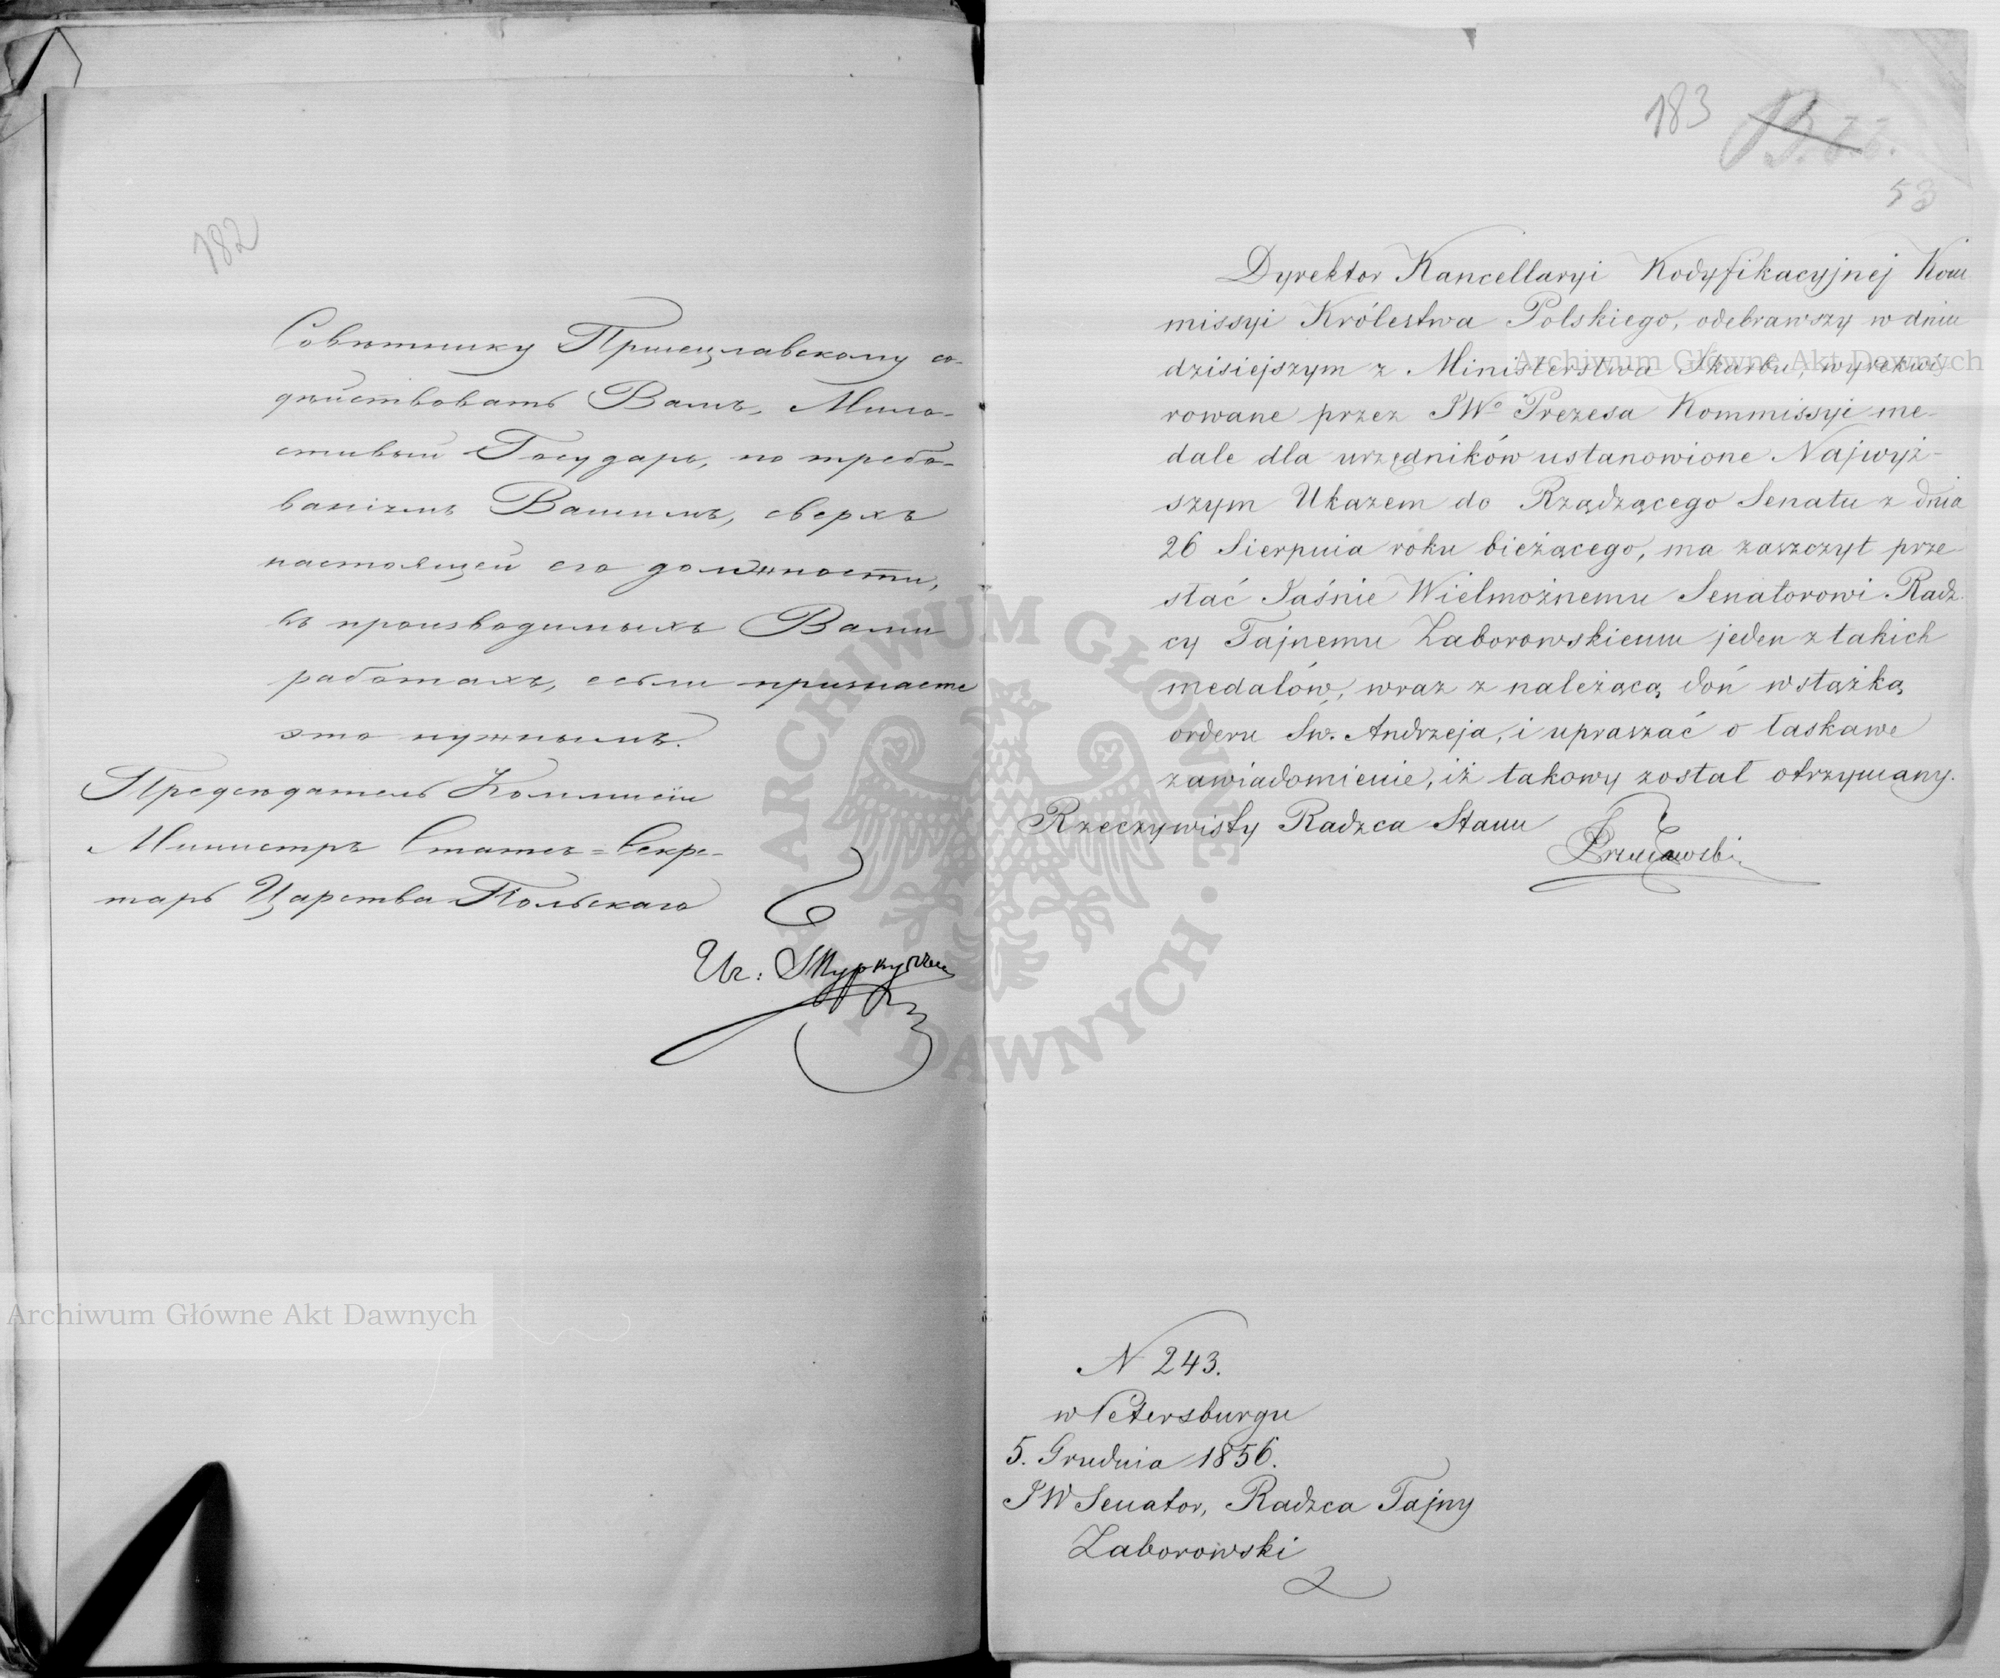 182
Совѣтнику Пршецлавскому со-
дѣйствовать Вамъ, Мило-
стивый Государь, по требо-
ваніямъ Вашимъ, сверхъ
настоящей его должности,
въ производимыхъ Вами
работахъ, если признаете
это нужнымъ.
Предсѣдатель Коммисіи
Министръ Статсъ=Секре-
тарь Царства Польскаго
Иг: Туркулъ
183
53
Dyrektor Kancellaryi Kodyfikacyjnej Kom
missyi Królestwa Polskiego, odebrawszy w dniu
dzisiejszym z Ministerstwa Skarbu, wyrekwi-
rowane przez JWo Prezesa Kommissyi me-
dale dla urzędników ustanowione Najwyż-
szym Ukazem do Rządzącego Senatu z dnia
26 Sierpnia roku bieżącego, ma zaszczyt prze-
słać Jaśnie Wielmożnemu Senatorowi Radz-
cy Tajnemu Zaborowskiemu jeden z takich
medalów, wraz z należącą doń wstążką
orderu Św. Andrzeja, i upraszać o łaskawe
zawiadomienie, iż takowy został otrzymany.
Rzeczywisty Radzca Stanu
Przecławski
N 243.
w Petersburgu
5. Grudnia 1856.
JW Senator, Radzca Tajny
Zaborowski
Archiwum Główne Akt Dawnych
Archiwum Główne Akt Dawnych
ARCHIWUM GŁÓWNE AKT DAWNYCH